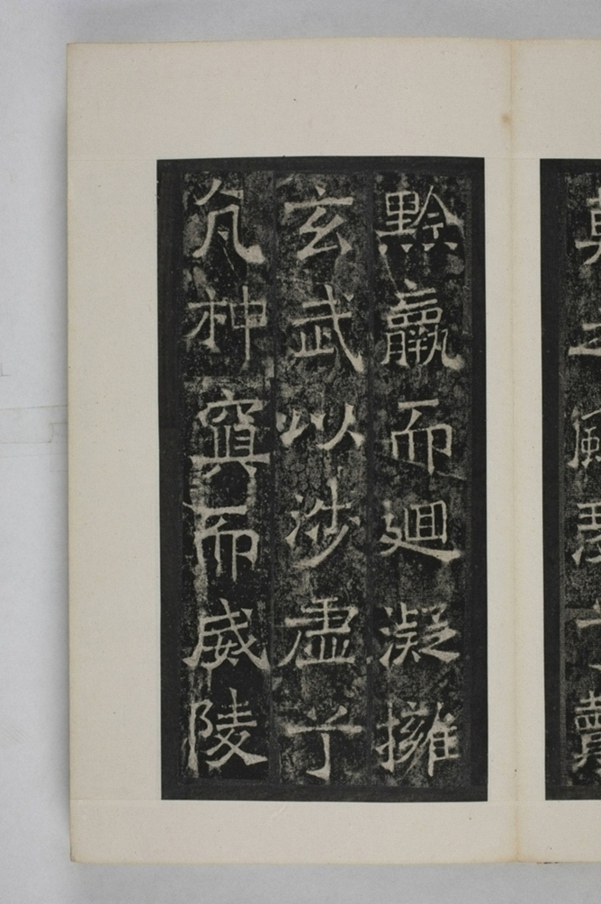 黔羸而迴凝擁
玄武以涉虛兮
亢神冥而威陵